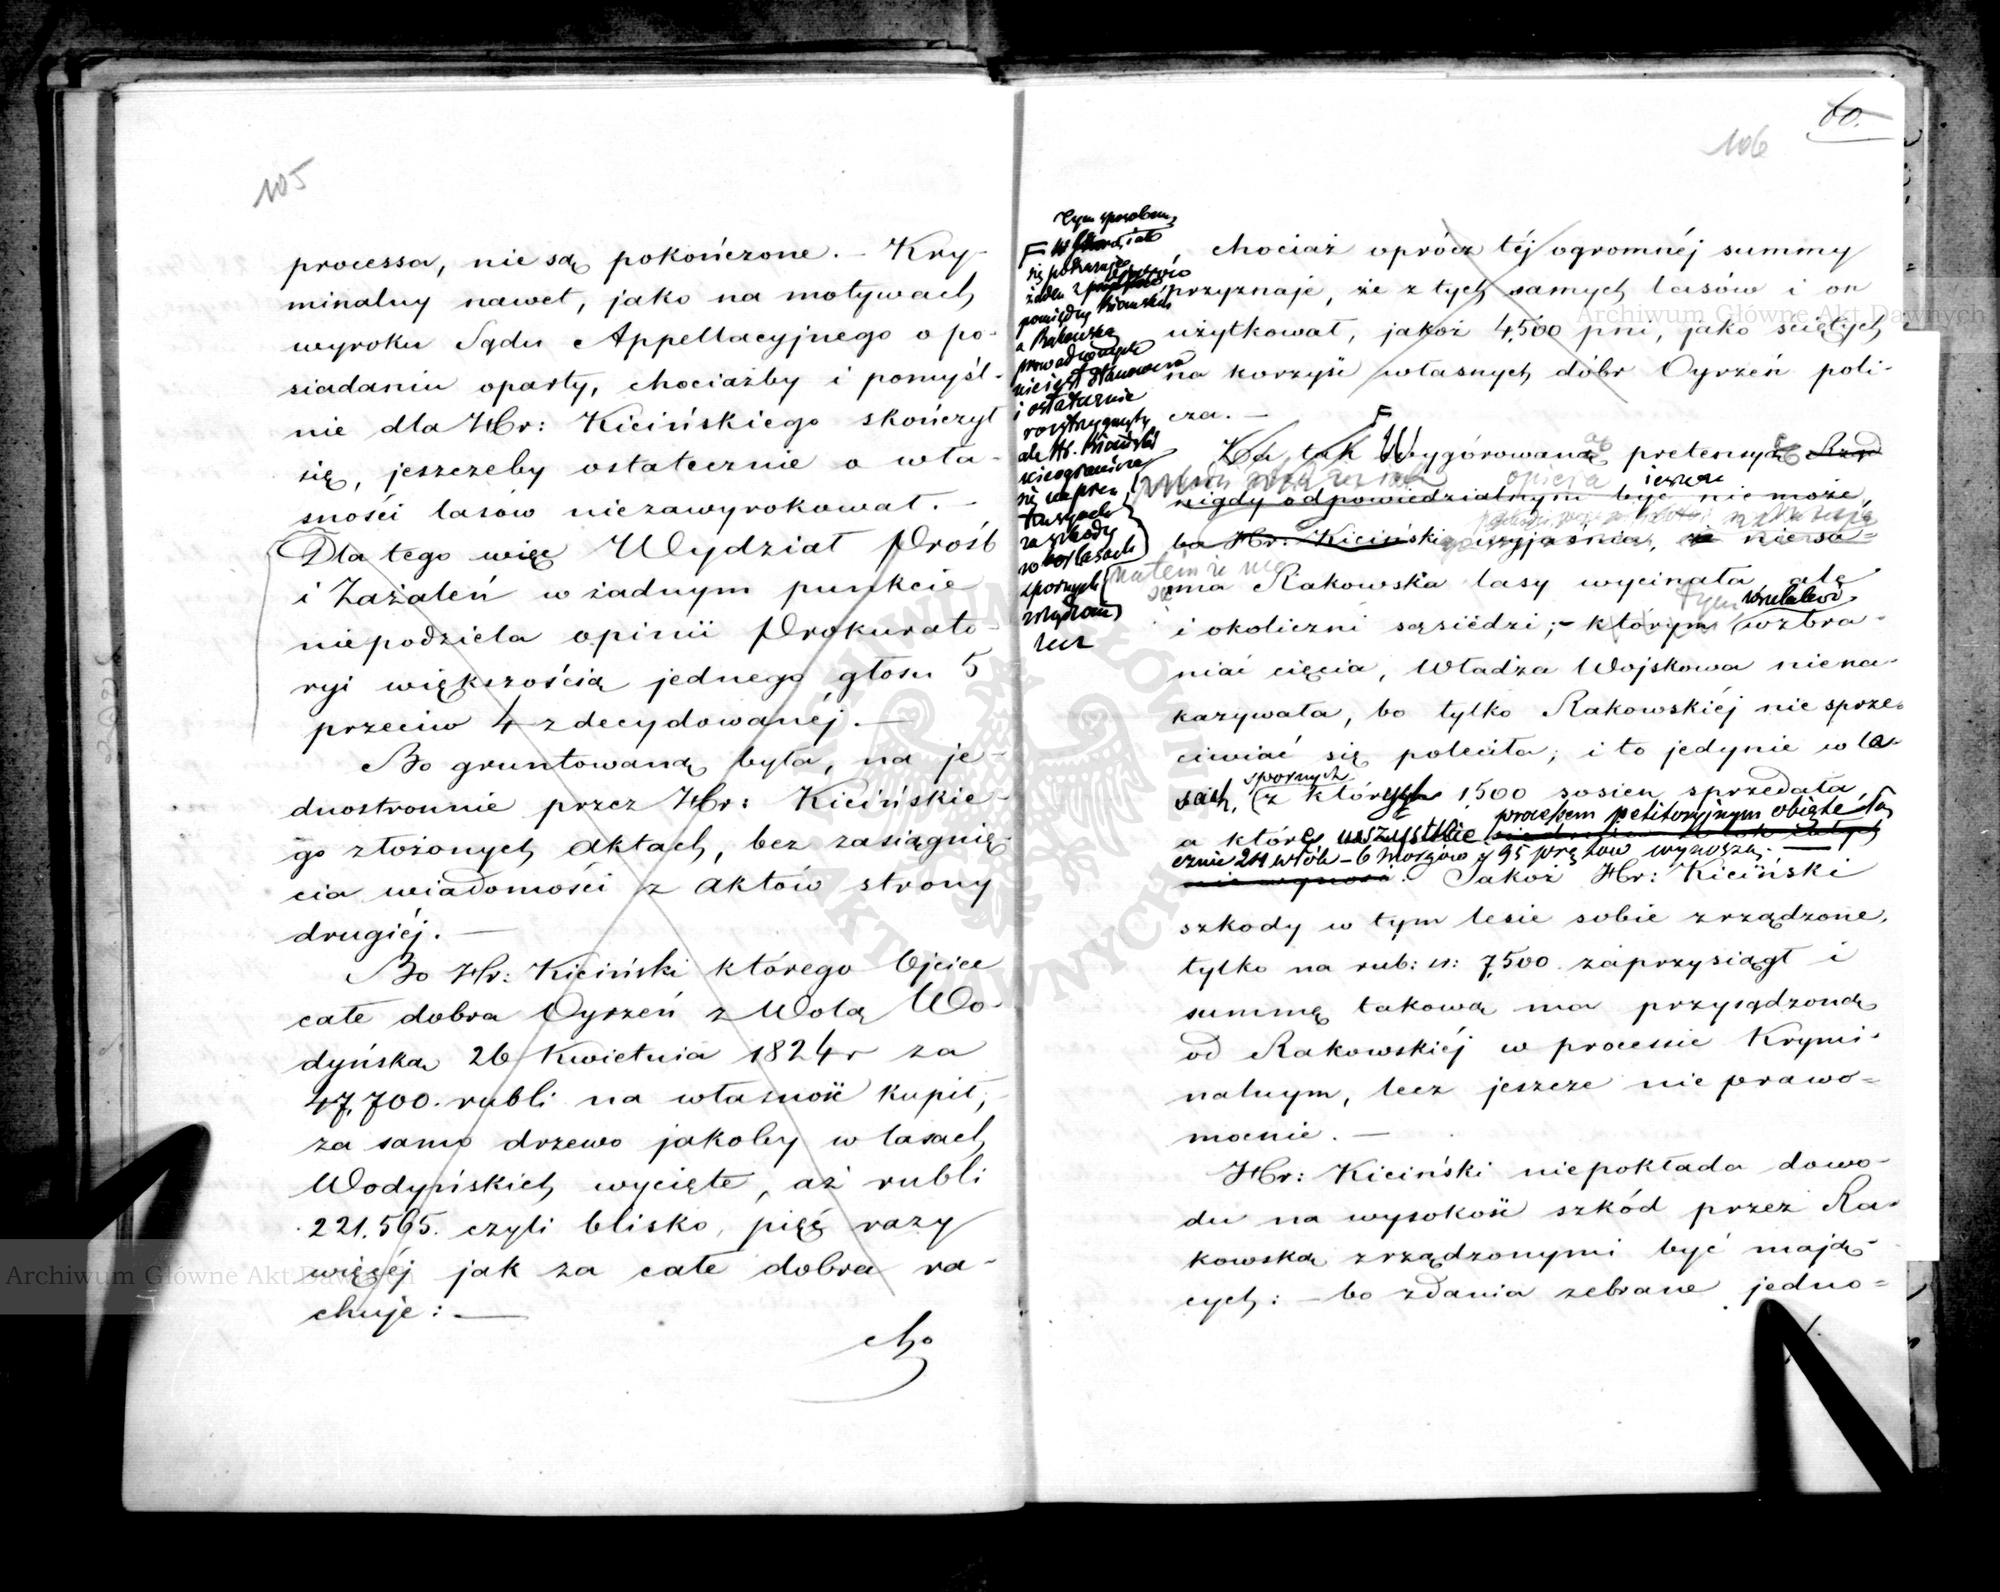 105
processa, nie są pokończone. — Kry-
minalny nawet, jako na motywach
wyroku Sądu Appellacyjnego o po-
siadaniu oparty, chociażby i pomyśl-
nie dla Hr: Kicińskiego skończył
się, jeszczeby ostatecznie o wła-
sności lasów niezawyrokował. —
Dla tego więc Wydział Próśb
i Zażaleń w żadnym punkcie
niepodziela opinii Prokurato-
ryi większością jednego głosu 5
przeciw 4 zdecydowanéj. —
Bo gruntowaną była, na je-
dnostronnie przez Hr: Kicińskie-
go złożonych aktach, bez zasiągnię-
cia wiadomości z aktów strony
drugiéj. —
Bo Hr: Kiciński którego Ojciec
całe dobra Oyrzeń z Wolą Wo-
dyńską 26 Kwietnia 1824 r za
47,700. rubli na własność kupił,
za samo drzewo jakoby w lasach
Wodyńskich wycięte, aż rubli
221.565. czyli blisko pięć razy
więcéj jak za całe dobra ra-
chuje: —
cho
60.
106
Tym sposobem
się pokazuje
żaden z
pomiędzy Kicińskim
a Rakowską
prowadzonych
nie jest stanowczo
i ostatecznie
rozstrzygnięty
ale Hr. Kiciński
nieogranicza
się w
za szkody
w lasach
spornych
zrządzone
lecz
chociaż oprócz téj ogromnéj summy
przyznaje, że z tych samych lasów i on
użytkował, jakoż 4,500 pni, jako ściętych
na korzyść własnych dóbr Oyrzeń poli-
cza. —
F
Za tak Wygórowaną pretensyą Rząd
opiera jeszcze
nigdy odpowiedzialnym być nie może,
bo Hr: Kiciński wyjaśnia, że nie sa-
na tem że nie
ma Rakowska lasy wycinała, ale
tym wzbraniać
i okoliczni sąsiedzi; — którym wzbra-
niać cięcia, Władza Wojskowa niena-
kazywała, bo tylko Rakowskiéj nie sprze-
ciwiać się poleciła; i to jedynie w la-
spornych
sach, z których 1500 sosien sprzedała
processem petitoryjnym objęte
a które wszystkie
cznie 24 włók — 6 morgów 95 prętów wynoszą. —
Jakoż Hr: Kiciński
szkody w tym lesie sobie zrządzone,
tylko na rub: sr: 7,500 zaprzysiągł i
summę takową ma przysądzoną
od Rakowskiéj w processie Krymi-
nalnym, lecz jeszcze nie prawo-
mocnie. —
Hr: Kiciński niepokłada dowo-
du na wysokość szkód przez Ra-
kowską zrządzonymi być mają-
cych: — bo zdania zebrane jedno-
Archiwum Główne Akt Dawnych
Archiwum Główne Akt Dawnych
ARCHIWUM GŁÓWNE AKT DAWNYCH